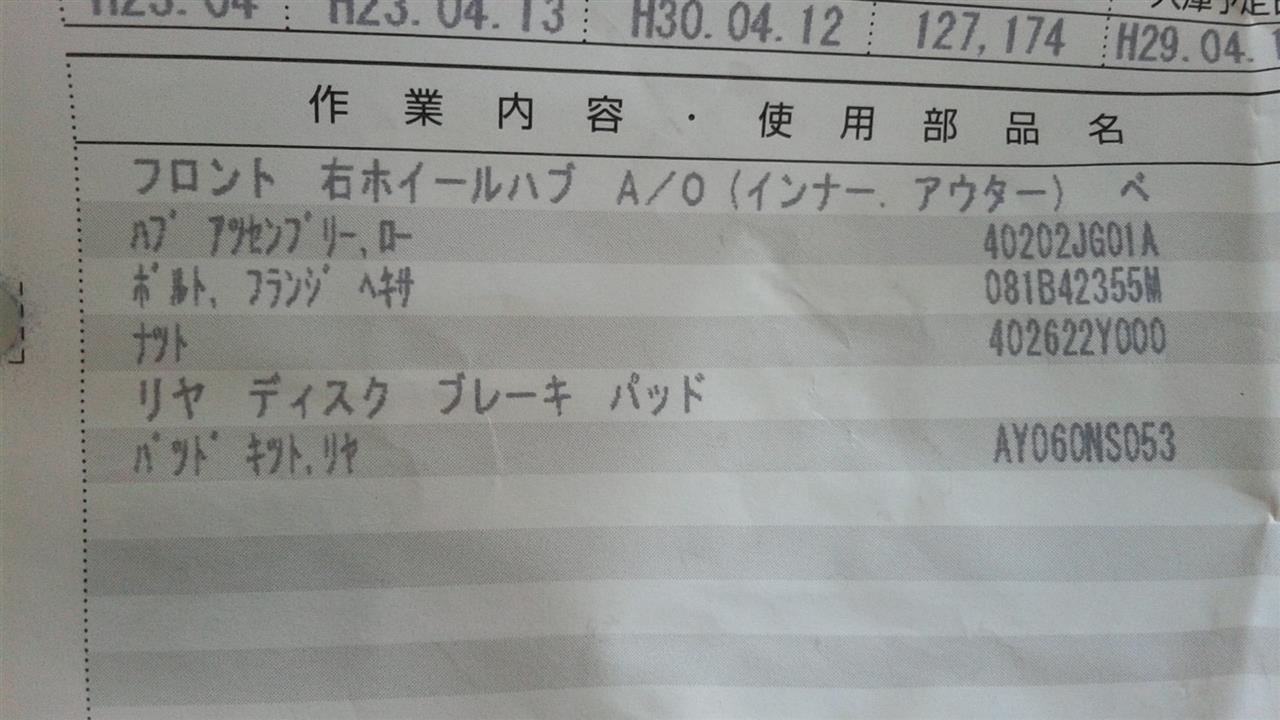 H23.04 H23.04.13 H30.04.12 127,174 H29.04.1
作業内容・使用部品名
フロント 右ホイールハブ A/O(インナー. アウター) ベ
ﾊﾌﾞ ｱﾂｾﾝﾌﾞﾘｰ,ﾛｰ 40202JG01A
ﾎﾞﾙﾄ, ﾌﾗﾝｼﾞ ﾍｷｻ 081B42355M
ﾅﾂﾄ 402622Y000
リヤ ディスク ブレーキ パッド
ﾊﾟﾂﾄﾞ ｷﾂﾄ,ﾘﾔ AY060NS053